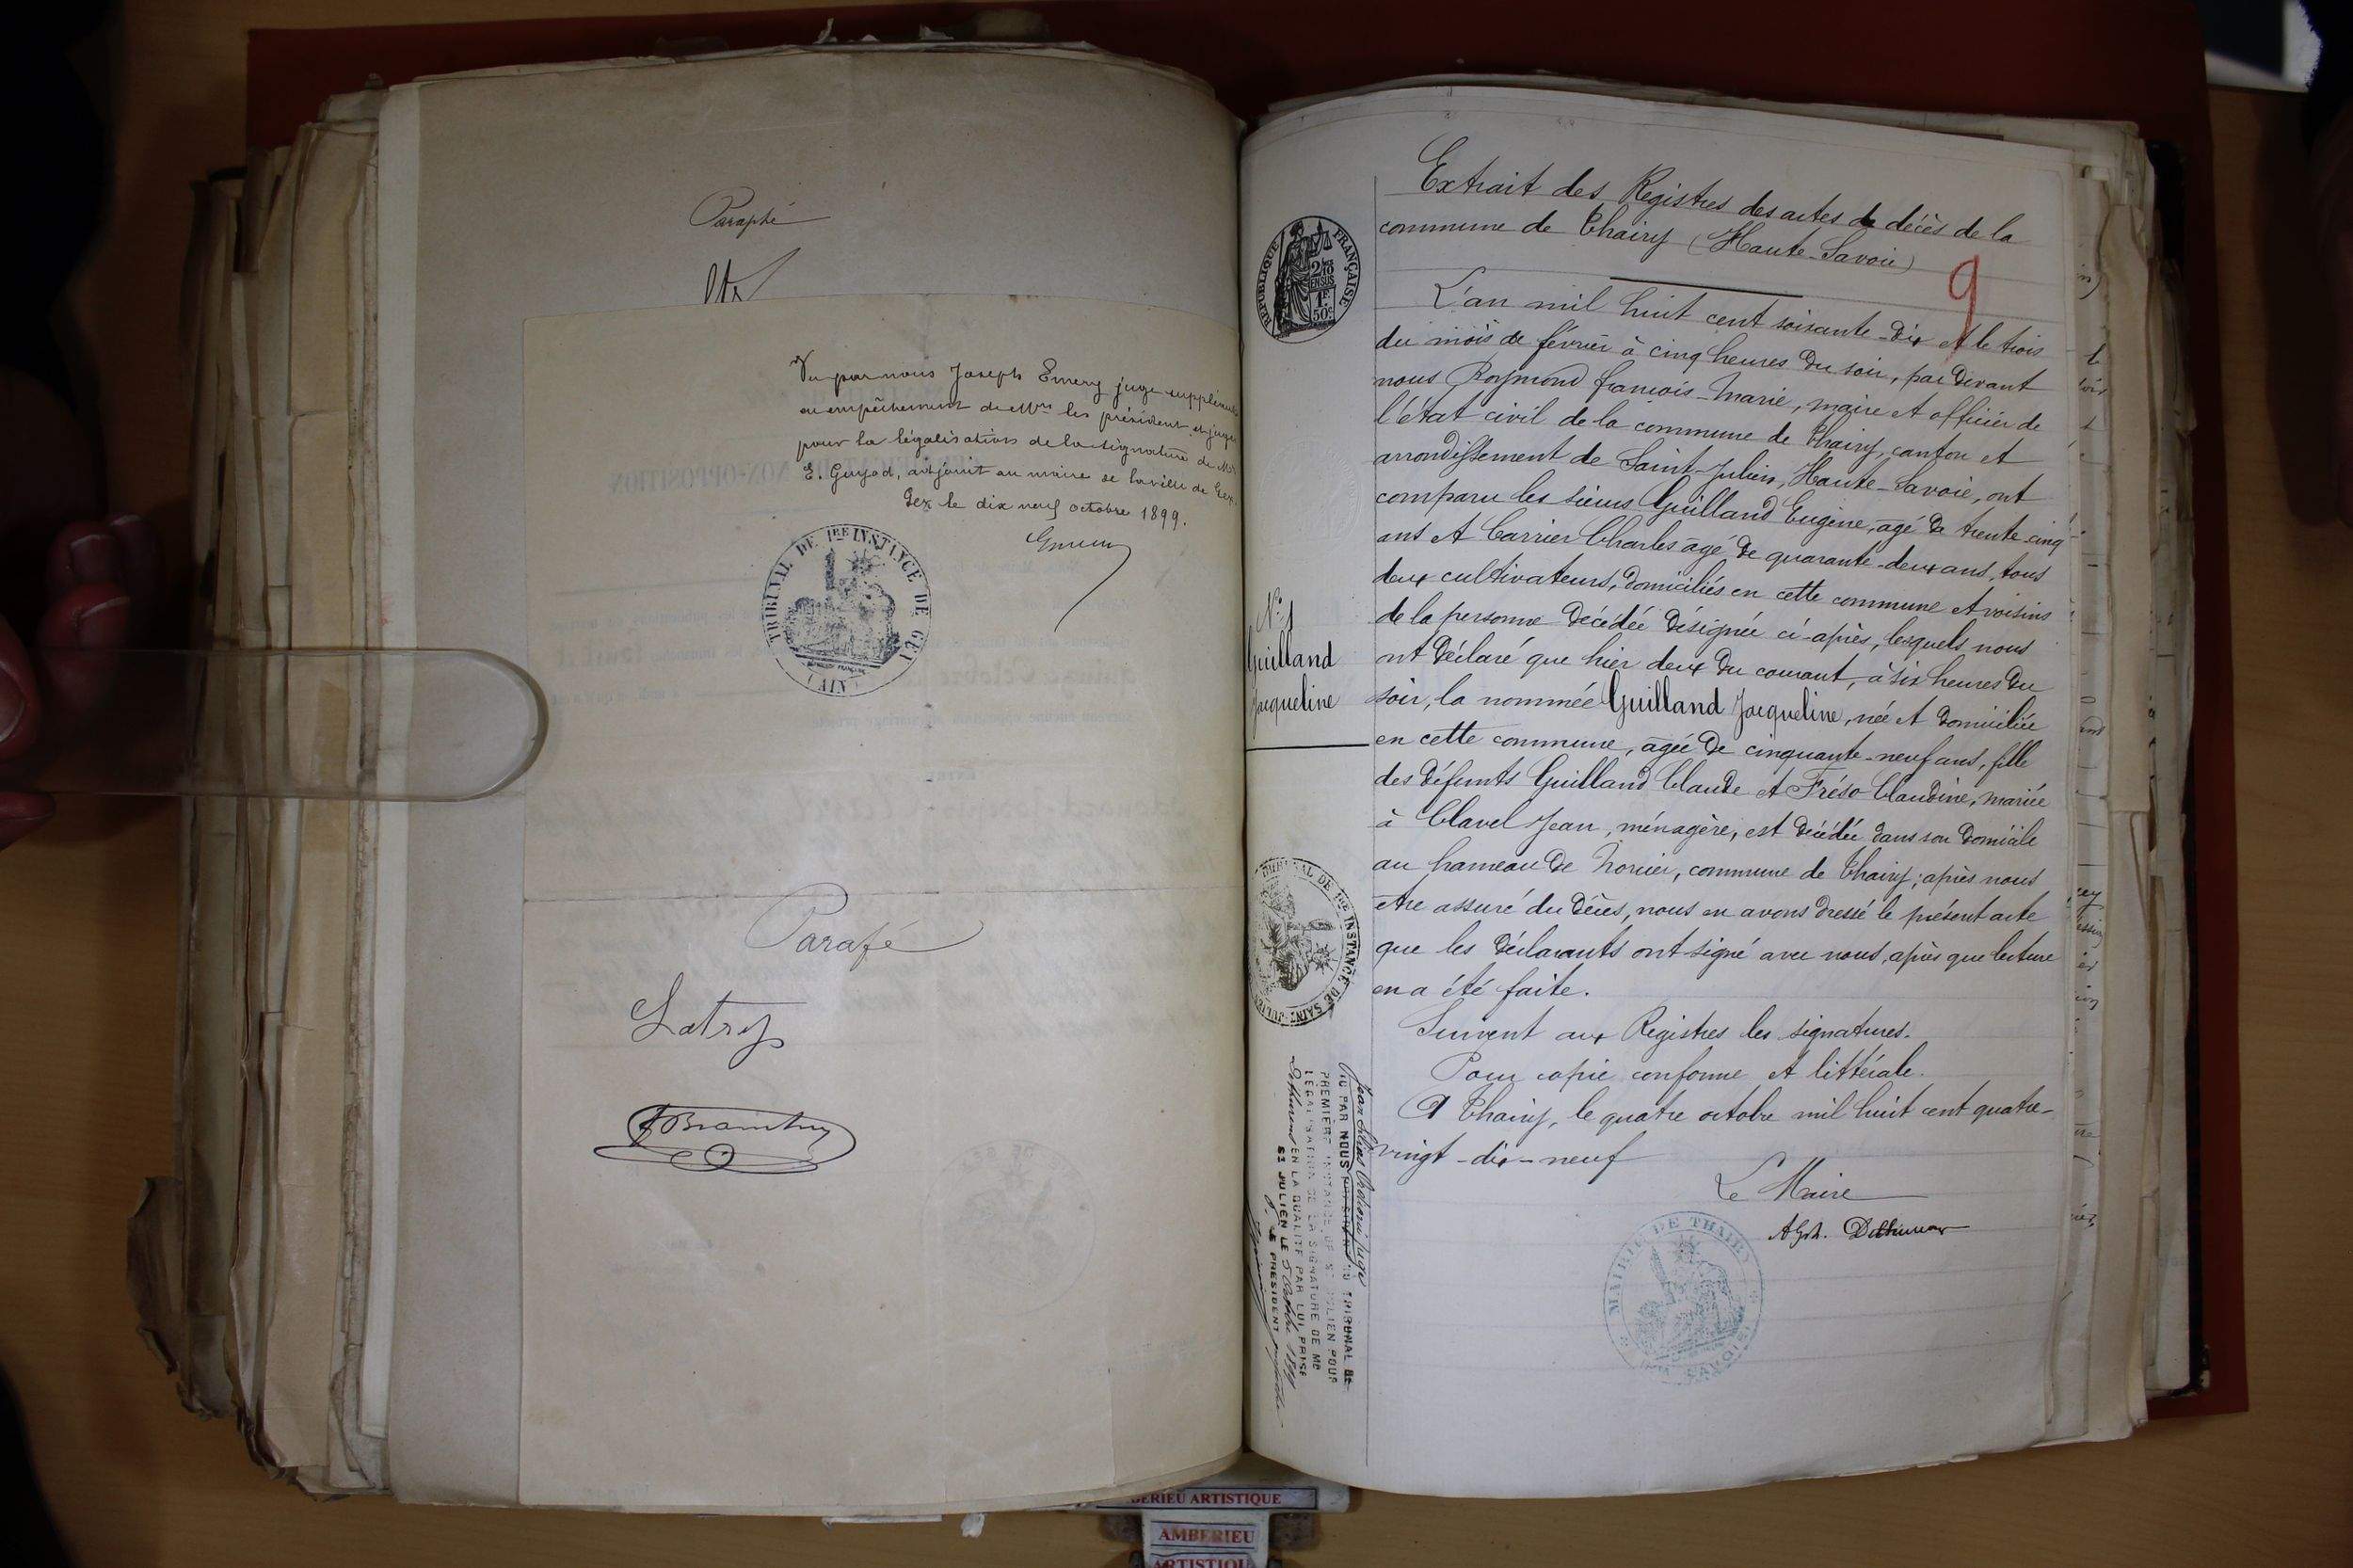 Paraphé
Vu par nous Joseph Emery juge suppléant
en empêchement de Mrs les président et juges
pour la légalisation de la signature de Mr
E. Guyod, adjoint au maire de la ville de Gex.
Gex le dix neuf octobre 1899.
Emery
TRIBUNAL DE 1RE INSTANCE DE GEX
(AIN)
NON-OPPOSITION
Parafé
Extrait des Registres des actes de décès de la
commune de Thairy (Haute-Savoie)
9
RÉPUBLIQUE FRANÇAISE
L'an mil huit cent soixante-dix et le trois
du mois de février à cinq heures du soir, par devant
nous Raymond françois-Marie, maire et officier de
l'état civil de la commune de Thairy, canton et
arrondissement de Saint-Julien, Haute-Savoie, ont
comparu les sieurs Guilland Eugène, agé de trente cinq
ans et Carrier Charles agé de quarante-deux ans, tous
deux cultivateurs, domiciliés en cette commune et voisins
de la personne décédée désignée ci-après, lesquels nous
ont déclaré que hier deux du courant, à six heures du
soir, la nommée Guilland Jacqueline, née et domiciliée
en cette commune, agée de cinquante-neuf ans, fille
des défunts Guilland Claude et Fréso Claudine, mariée
à Clavel Jean, ménagère, est décédée dans son domicile
au hameau de Norcier, commune de Thairy; après nous
etre assuré du décès, nous en avons dressé le présent acte
que les déclarants ont signé avec nous, après que lecture
en a été faite.
Suivent aux Registres les signatures.
Pour copie conforme et littérale.
A Thairy, le quatre octobre mil huit cent quatre-
vingt-dix-neuf
Le Maire
N° 1
Guilland
Jacqueline
TRIBUNAL DE 1RE INSTANCE DE SAINT-JULIEN
VU PAR NOUS PRÉSIDENT DU TRIBUNAL DE
PREMIÈRE INSTANCE DE ST JULIEN POUR
LÉGALISATION DE LA SIGNATURE DE MR
EN LA QUALITÉ PAR LUI PRISE
ST JULIEN LE 5 Octobre 1899
P. LE PRESIDENT
MAIRIE DE THAIRY
AMBERIEU ARTISTIQUE
AMBERIEU
ARTISTIQUE